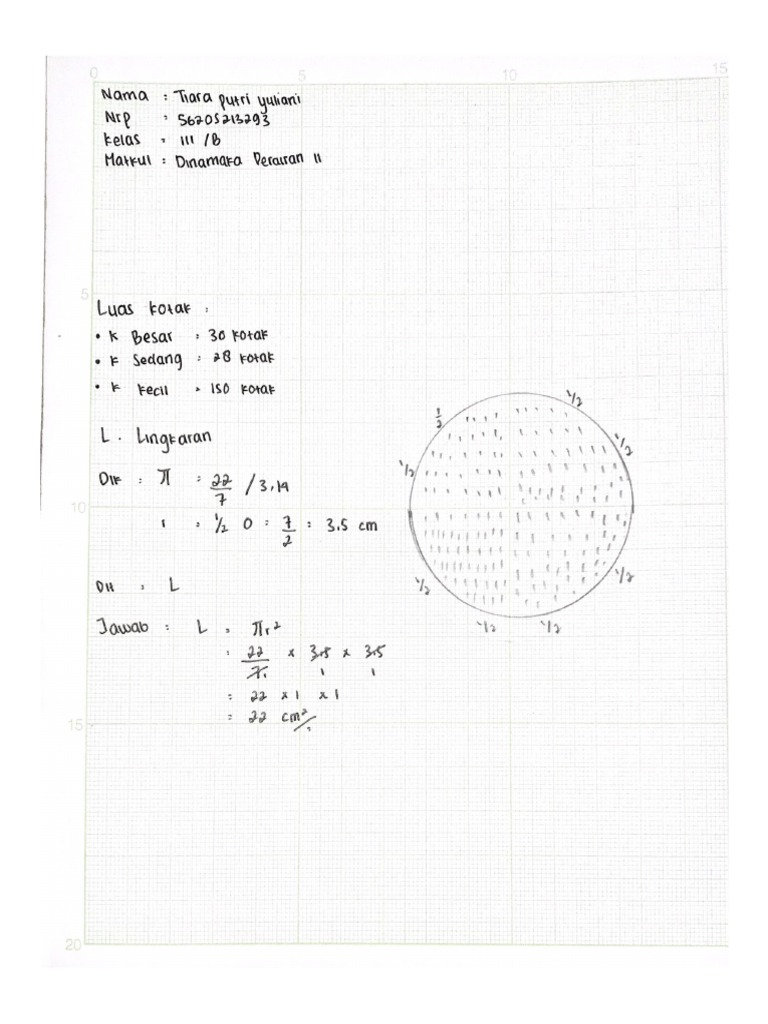 0 5 10 15
Nama : Tiara putri yuliani
Nrp : 56205213293
Kelas : III /B
Matkul : Dinamaka Perairan II
5
Luas kotak :
• K Besar : 30 kotak
• K Sedang : 28 kotak
• K kecil : 150 kotak
L. Lingkaran
Dik : π : 22/7 / 3,14
10
r : 1/2 D : 7/2 : 3.5 cm
Dit : L
Jawab : L : πr²
: 22/7 x 3.5 x 3.5
1 1 1
= 22 x 1 x 1
15
= 22 cm²
20
1/2
1/2
1/2
1/2
1/2
1/2
1/2
1/2